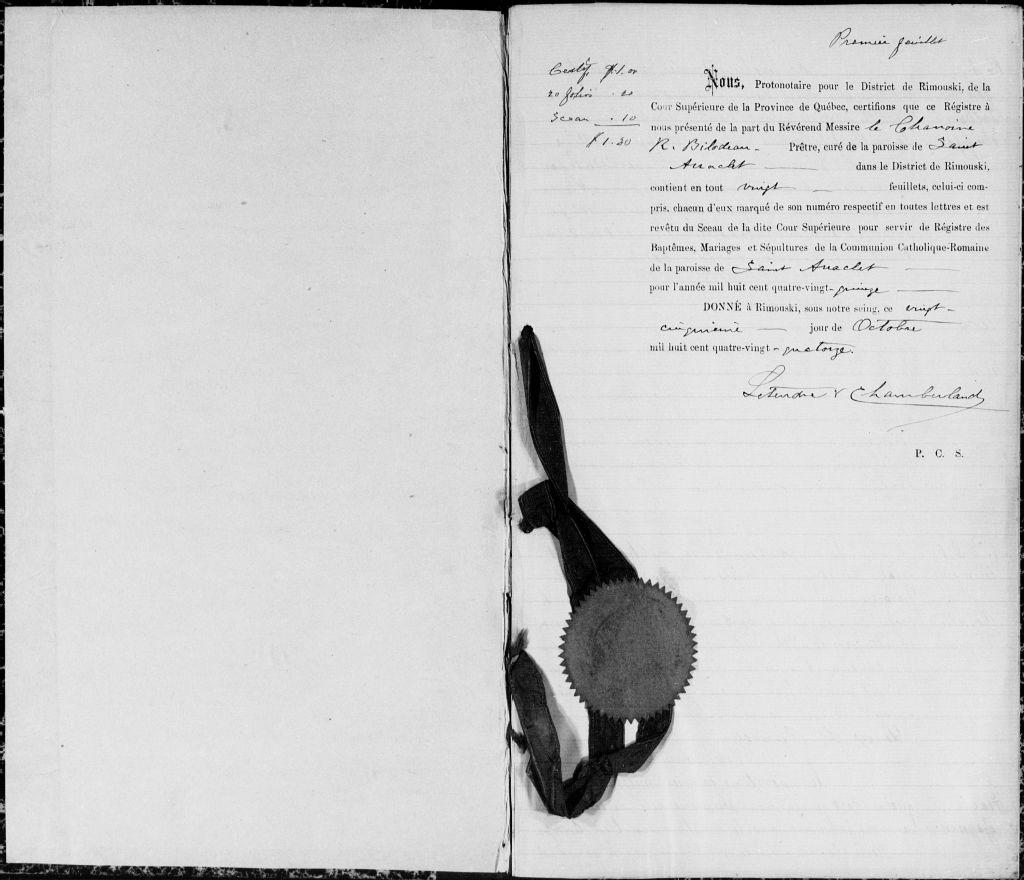 Premier feuillet
Certif. $1.00
20 folios .20
Sceau .10
$1.30
Nous, Protonotaire pour le District de Rimouski, de la
Cour Supérieure de la Province de Québec, certifions que ce Régistre à
nous présenté de la part du Révérend Messire le Chanoine
R. Bilodeau - Prêtre, curé de la paroisse de Saint
Anaclet — dans le District de Rimouski,
contient en tout vingt — feuillets, celui-ci com-
pris, chacun d'eux marqué de son numéro respectif en toutes lettres et est
revêtu du Sceau de la dite Cour Supérieure pour servir de Régistre des
Baptêmes, Mariages et Sépultures de la Communion Catholique-Romaine
de la paroisse de Saint Anaclet —
pour l'année mil huit cent quatre-vingt-quinze —
DONNÉ à Rimouski, sous notre seing, ce vingt-
cinquième — jour de Octobre
mil huit cent quatre-vingt-quatorze.
Letendre & Chamberland
P. C. S.